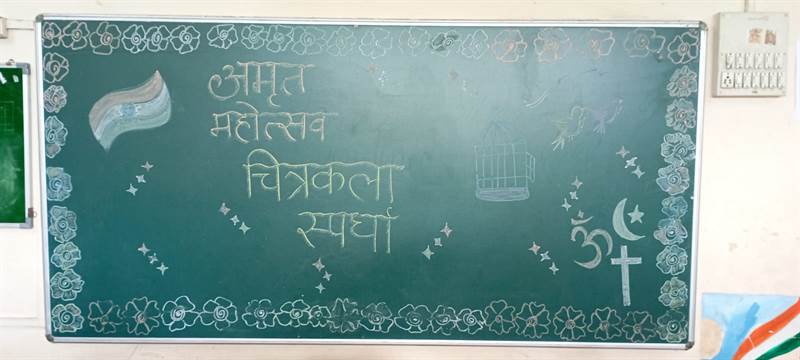 अमृत
महोत्सव
चित्रकला
स्पर्धा
ॐ